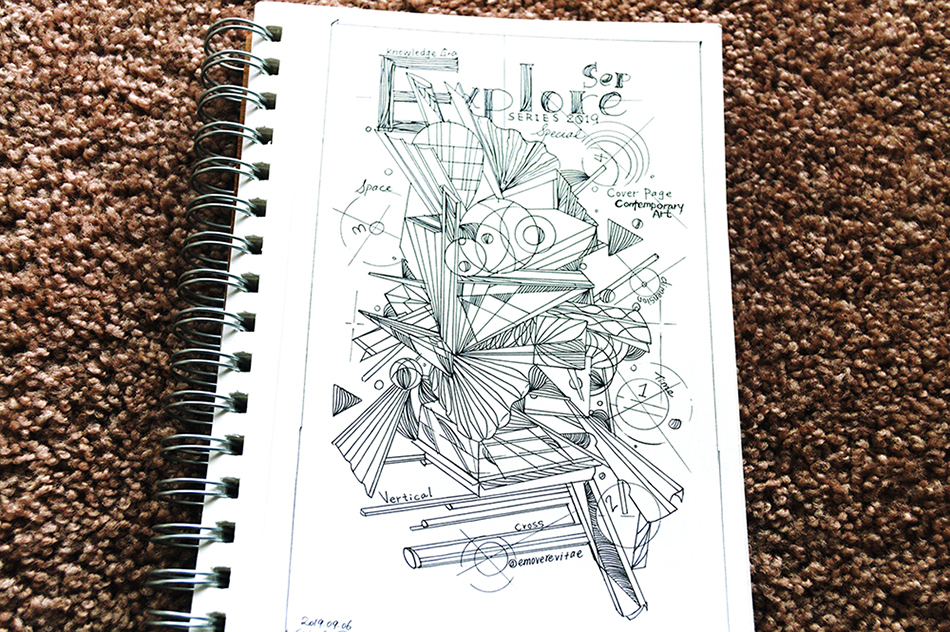 Knowledge Era
Explore
Sep
SERIES 2019
Special
Space
3
4
Cover Page
Contemporary
Art
dimension
Time
1
Vertical
Cross
@emoverevitae
2019.09.06